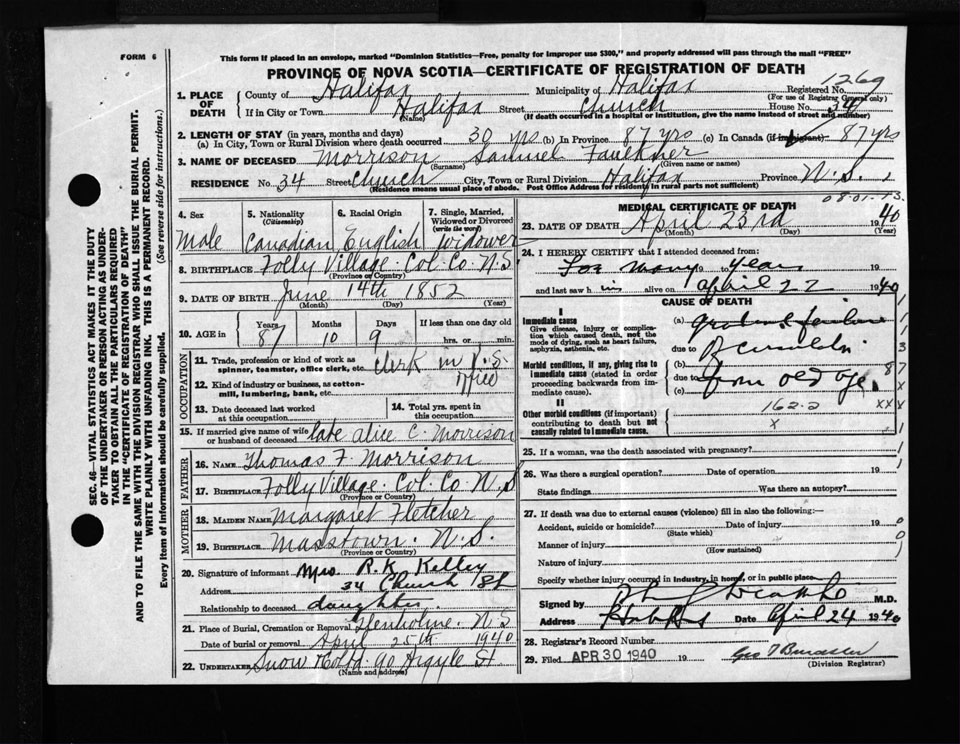 FORM 6
This form if placed in an envelope, marked "Dominion Statistics—Free, penalty for improper use $300," and properly addressed will pass through the mail "FREE"
PROVINCE OF NOVA SCOTIA—CERTIFICATE OF REGISTRATION OF DEATH
1269
1. PLACE OF DEATH
County of Halifax Municipality of Halifax Registered No.
(For use of Registrar General only)
If in City or Town Halifax Street Church House No. 34
(Name) (If death occurred in a hospital or institution, give the name instead of street and number)
2. LENGTH OF STAY (in years, months and days)
(a) In City, Town or Rural Division where death occurred 30 yrs (b) In Province 87 yrs (c) In Canada (if immigrant) 87 yrs
3. NAME OF DECEASED Morrison Samuel Faulkner
(Surname) (Given name or names)
RESIDENCE No. 34 Street Church City, Town or Rural Division Halifax Province N.S.
(Residence means usual place of abode. Post Office Address for residents in rural parts not sufficient)
4. Sex Male
5. Nationality (Citizenship) Canadian
6. Racial Origin English
7. Single, Married, Widowed or Divorced (write the word) Widower
8. BIRTHPLACE Folly Village. Col. Co. N.S.
(Province or Country)
9. DATE OF BIRTH June 14th 1852
(Month) (Day) (Year)
10. AGE in Years 87 Months 10 Days 9 If less than one day old hrs. or min.
OCCUPATION
11. Trade, profession or kind of work as spinner, teamster, office clerk, etc. Clerk in office
12. Kind of industry or business, as cotton-mill, lumbering, bank, etc.
13. Date deceased last worked at this occupation
14. Total yrs. spent in this occupation
15. If married give name of wife or husband of deceased late Alice C. Morrison
FATHER
16. NAME Thomas F. Morrison
17. BIRTHPLACE Folly Village. Col. Co. N.S
(Province or Country)
MOTHER
18. MAIDEN NAME Margaret Fletcher
19. BIRTHPLACE Masstown. N.S.
(Province or Country)
20. Signature of informant Mrs. R. K. Kelley
Address 34 Church St
Relationship to deceased daughter.
21. Place of Burial, Cremation or Removal Glenholme. N S
Date of burial or removal April 25th 1940
22. UNDERTAKER Snow & Co Ltd. 90 Argyle St.
(Name and address)
MEDICAL CERTIFICATE OF DEATH
08-01-73
23. DATE OF DEATH April 23rd 1940
(Month) (Day) (Year)
24. I HEREBY CERTIFY that I attended deceased from:
For many years
and last saw him alive on April 22 1940
CAUSE OF DEATH
I
Immediate cause
Give disease, injury or complication which caused death, not the mode of dying, such as heart failure, asphyxia, asthenia, etc.
(a) gradual failure
due to
Morbid conditions, if any, giving rise to immediate cause (stated in order proceeding backwards from immediate cause).
(b)
due to from old age.
(c)
II
Other morbid conditions (if important) contributing to death but not causally related to immediate cause.
162.2
x
25. If a woman, was the death associated with pregnancy?
26. Was there a surgical operation? Date of operation 19
State findings Was there an autopsy?
27. If death was due to external causes (violence) fill in also the following:—
Accident, suicide or homicide? Date of injury 19
(State which)
Manner of injury
(How sustained)
Nature of injury
Specify whether injury occurred in industry, in home, or in public place
Signed by M.D.
Address Halifax Date April 24 1940
28. Registrar's Record Number
29. Filed APR 30 1940 19
(Division Registrar)
SEC. 46—VITAL STATISTICS ACT MAKES IT THE DUTY
OF THE UNDERTAKER OR PERSON ACTING AS UNDER-
TAKER TO OBTAIN ALL THE PARTICULARS REQUIRED
IN THE "CERTIFICATE OF REGISTRATION OF DEATH"
AND TO FILE THE SAME WITH THE DIVISION REGISTRAR WHO SHALL ISSUE THE BURIAL PERMIT.
WRITE PLAINLY WITH UNFADING INK. THIS IS A PERMANENT RECORD.
Every item of information should be carefully supplied. (See reverse side for instructions.)